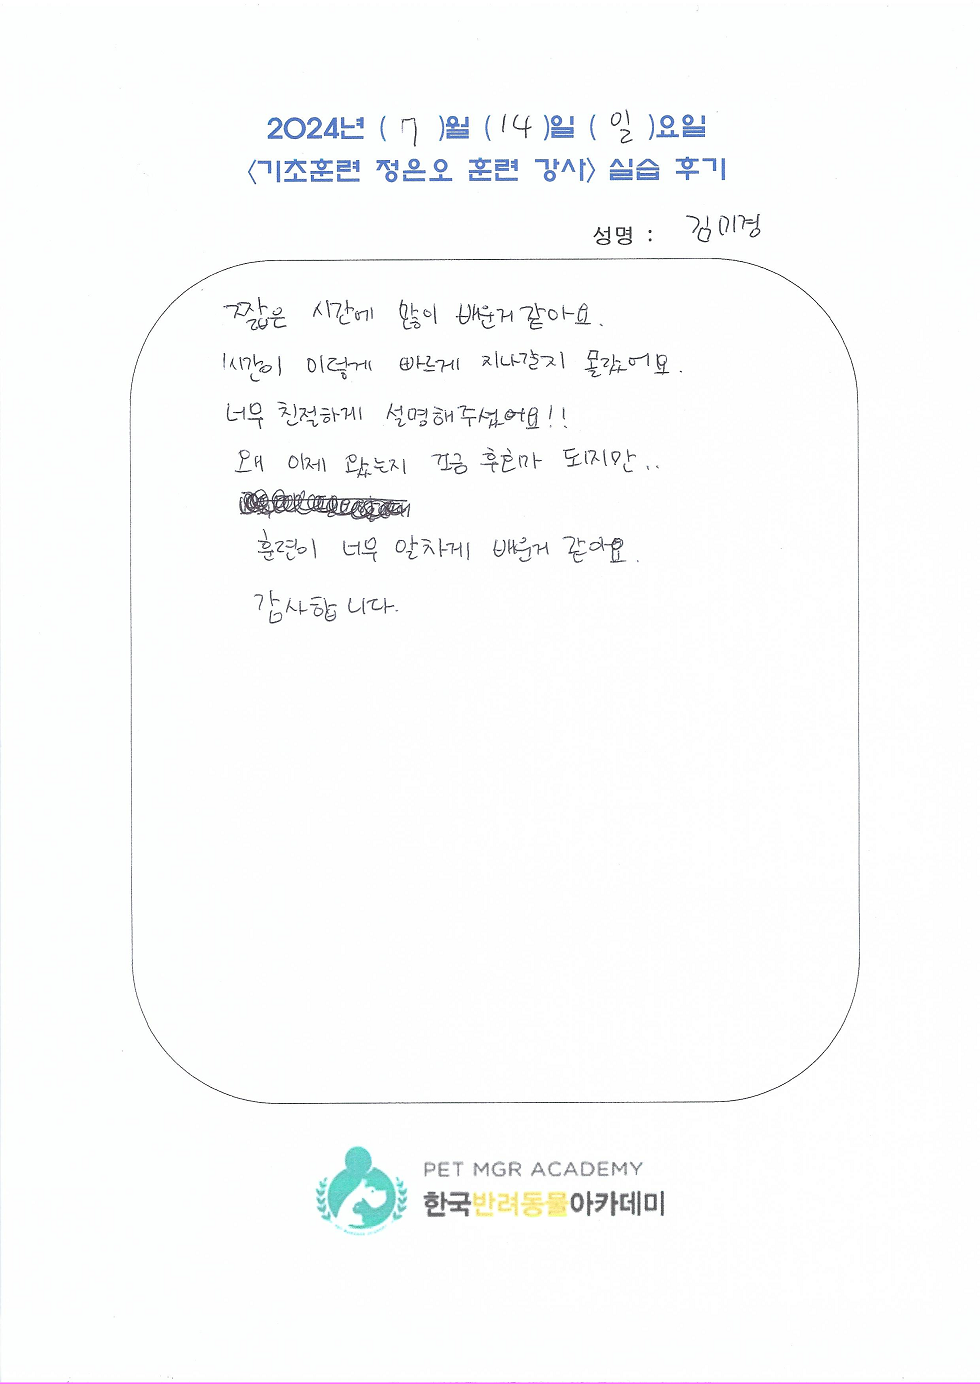 2024년 ( 7 )월 ( 14 )일 ( 일 )요일
<기초훈련 정은오 훈련 강사> 실습 후기
성명 : 김미경
짧은 시간에 많이 배운거 같아요.
1시간이 이렇게 빠르게 지나갈지 몰랐어요.
너무 친절하게 설명해주셨어요!!
왜 이제 왔는지 조금 후회가 되지만..
훈련이 너무 알차게 배운거 같아요.
감사합니다.
PET MGR ACADEMY
한국반려동물아카데미